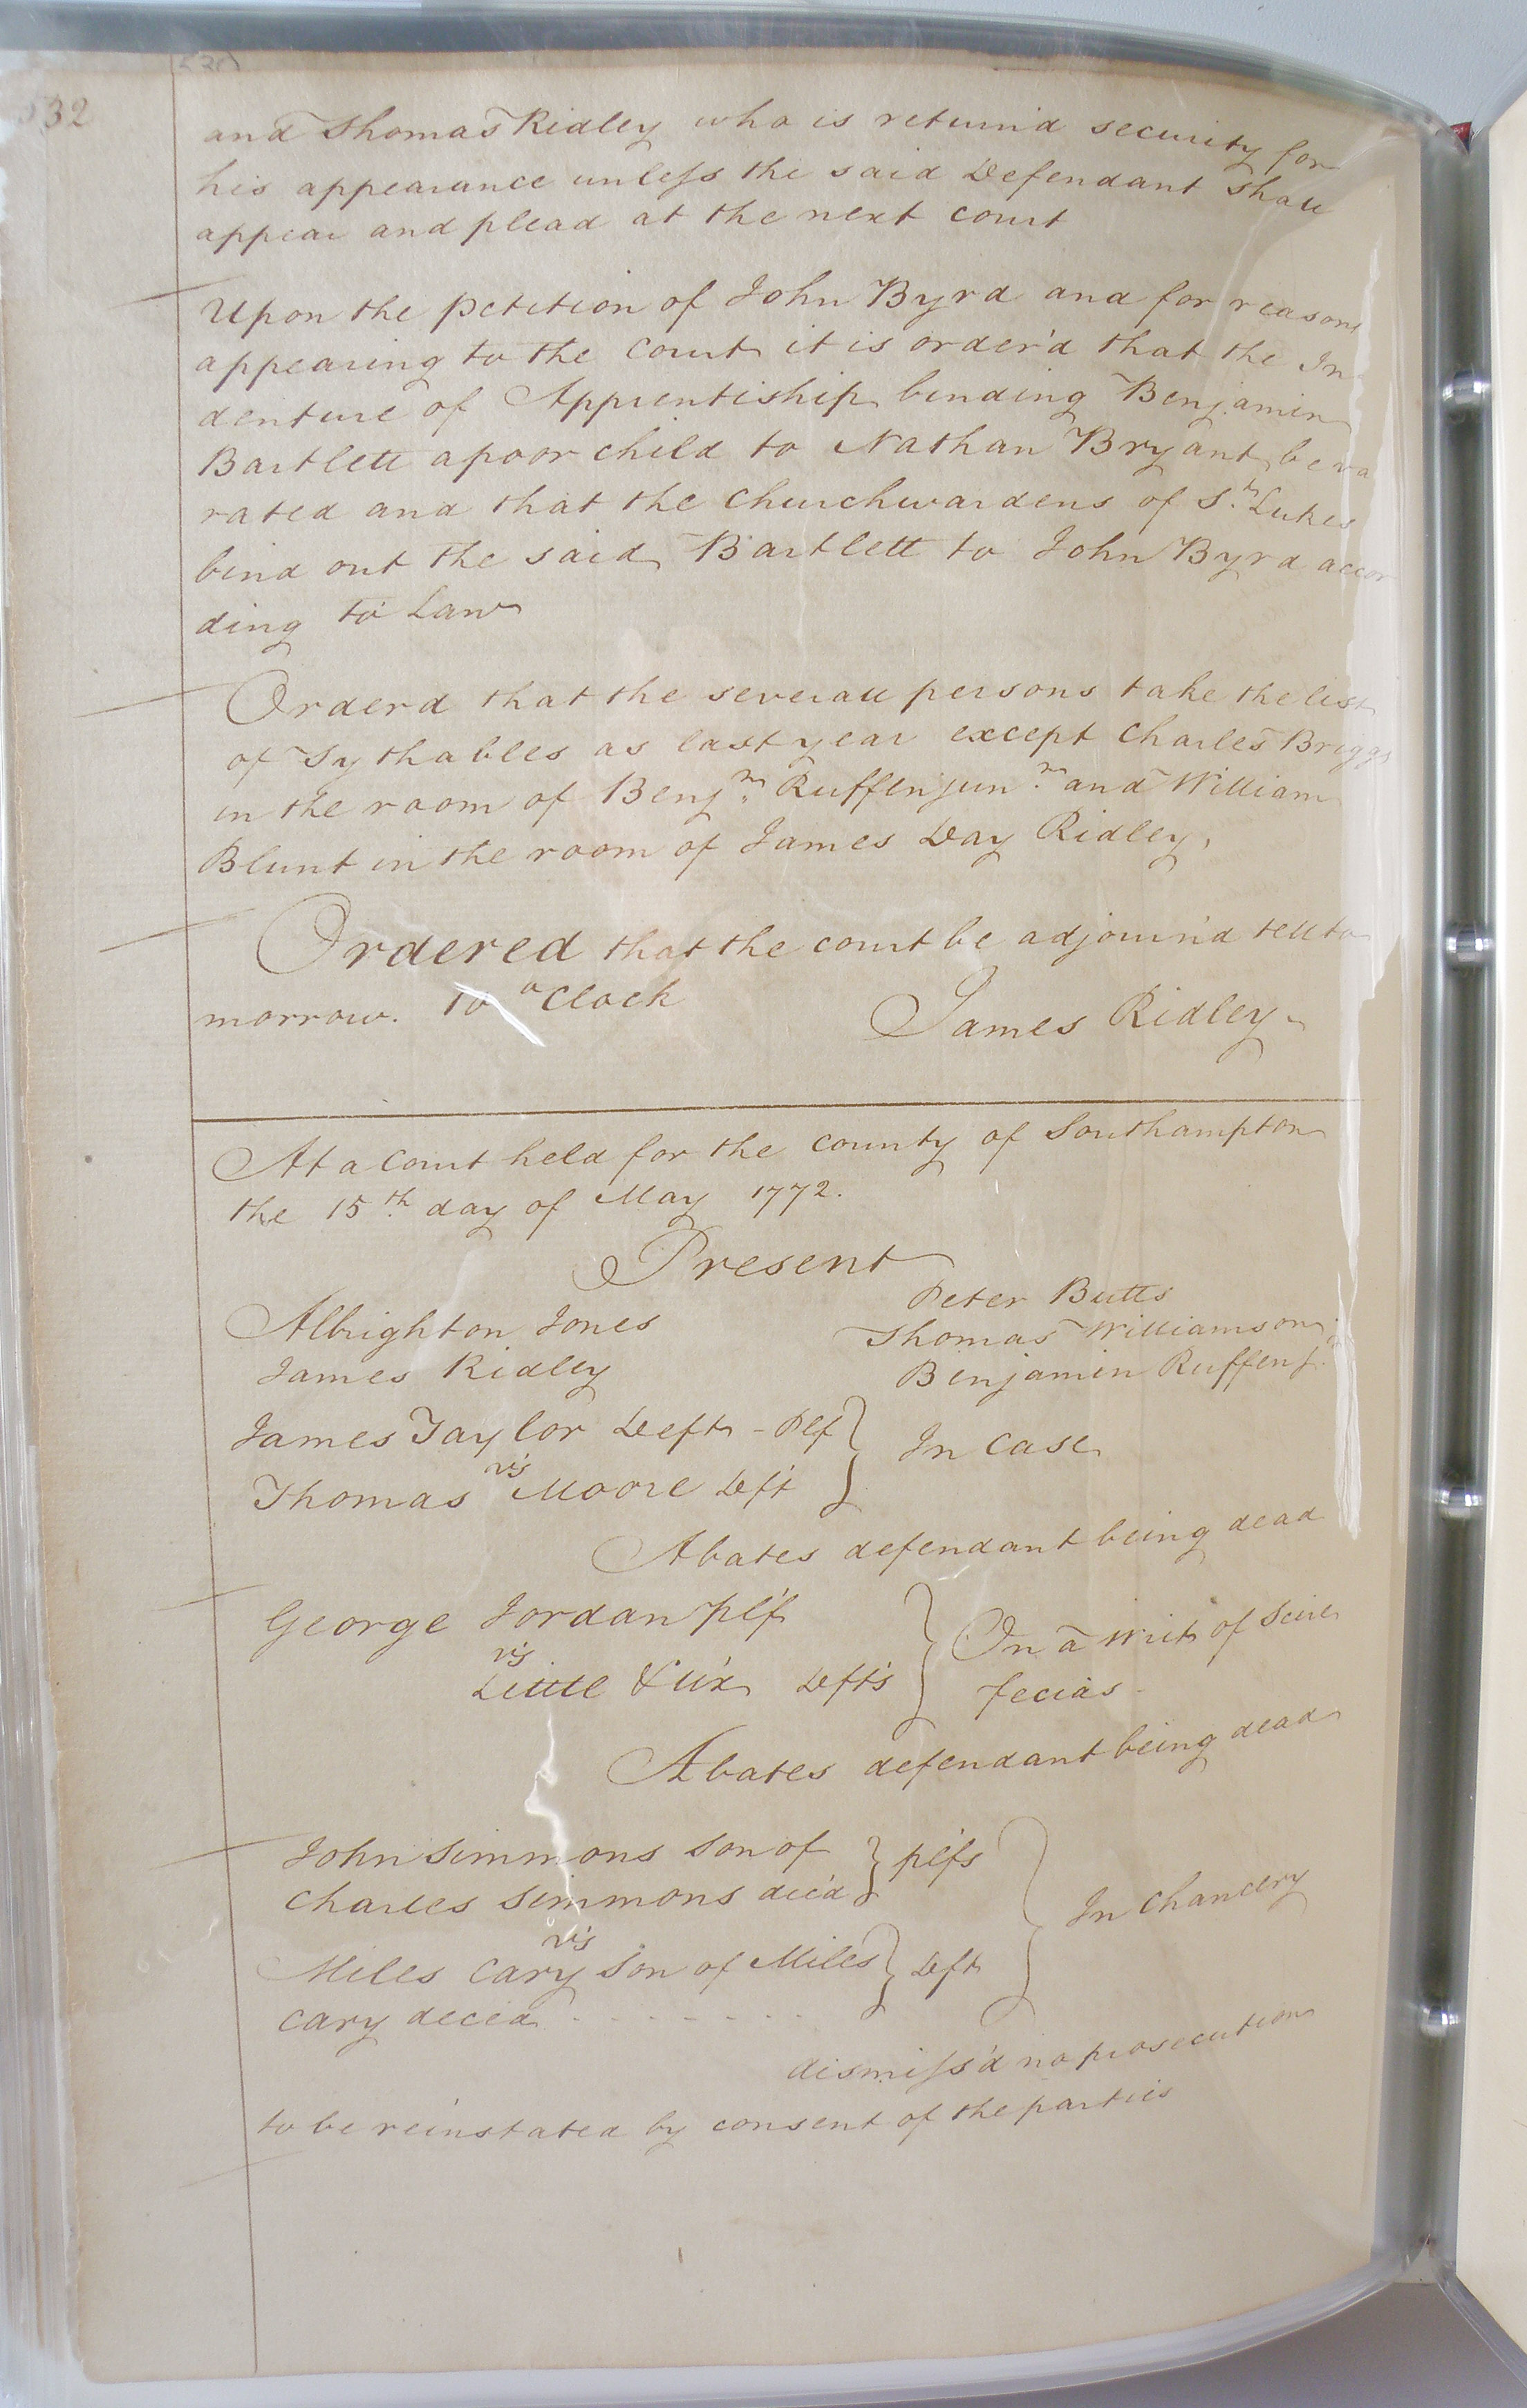 532
and Thomas Ridley who is return'd security for
his appearance unless the said Defendant shall
appear and plead at the next court
Upon the petition of John Byrd and for reasons
appearing to the Court it is order'd that the In
denture of Apprentiship binding Benjamin
Bartlett a poor child to Nathan Bryant be va
rated and that the Churchwardens of St. Lukes
bind out the said Bartlett to John Byrd accor
ding to Law
Orderd that the severall persons take the list
of Tythables as last year except Charles Briggs
in the room of Benjm. Ruffen junr. and William
Blunt in the room of James Day Ridley,
Ordered that the court be adjourn'd till to
morrow. 10 o Clock
James Ridley
At a Court held for the County of Southampton
the 15th. day of May 1772.
Present
Albrighton Jones
James Ridley
Peter Butts
Thomas Williamson
Benjamin Ruffen j
James Taylor Deft - Plf } In Case
vs
Thomas Moore Deft
Abates defendant being dead
George Jordan plf } On a Writ of Scire
vs
Little & ux Defts fecias
Abates defendant being dead
John Simmons son of } plfs } In Chancery
Charles Simmons dec'd
vs
Miles Cary son of Miles } Deft
Cary deced - - - - - - -
dismiss'd no prosecution
to be reinstated by consent of the parties